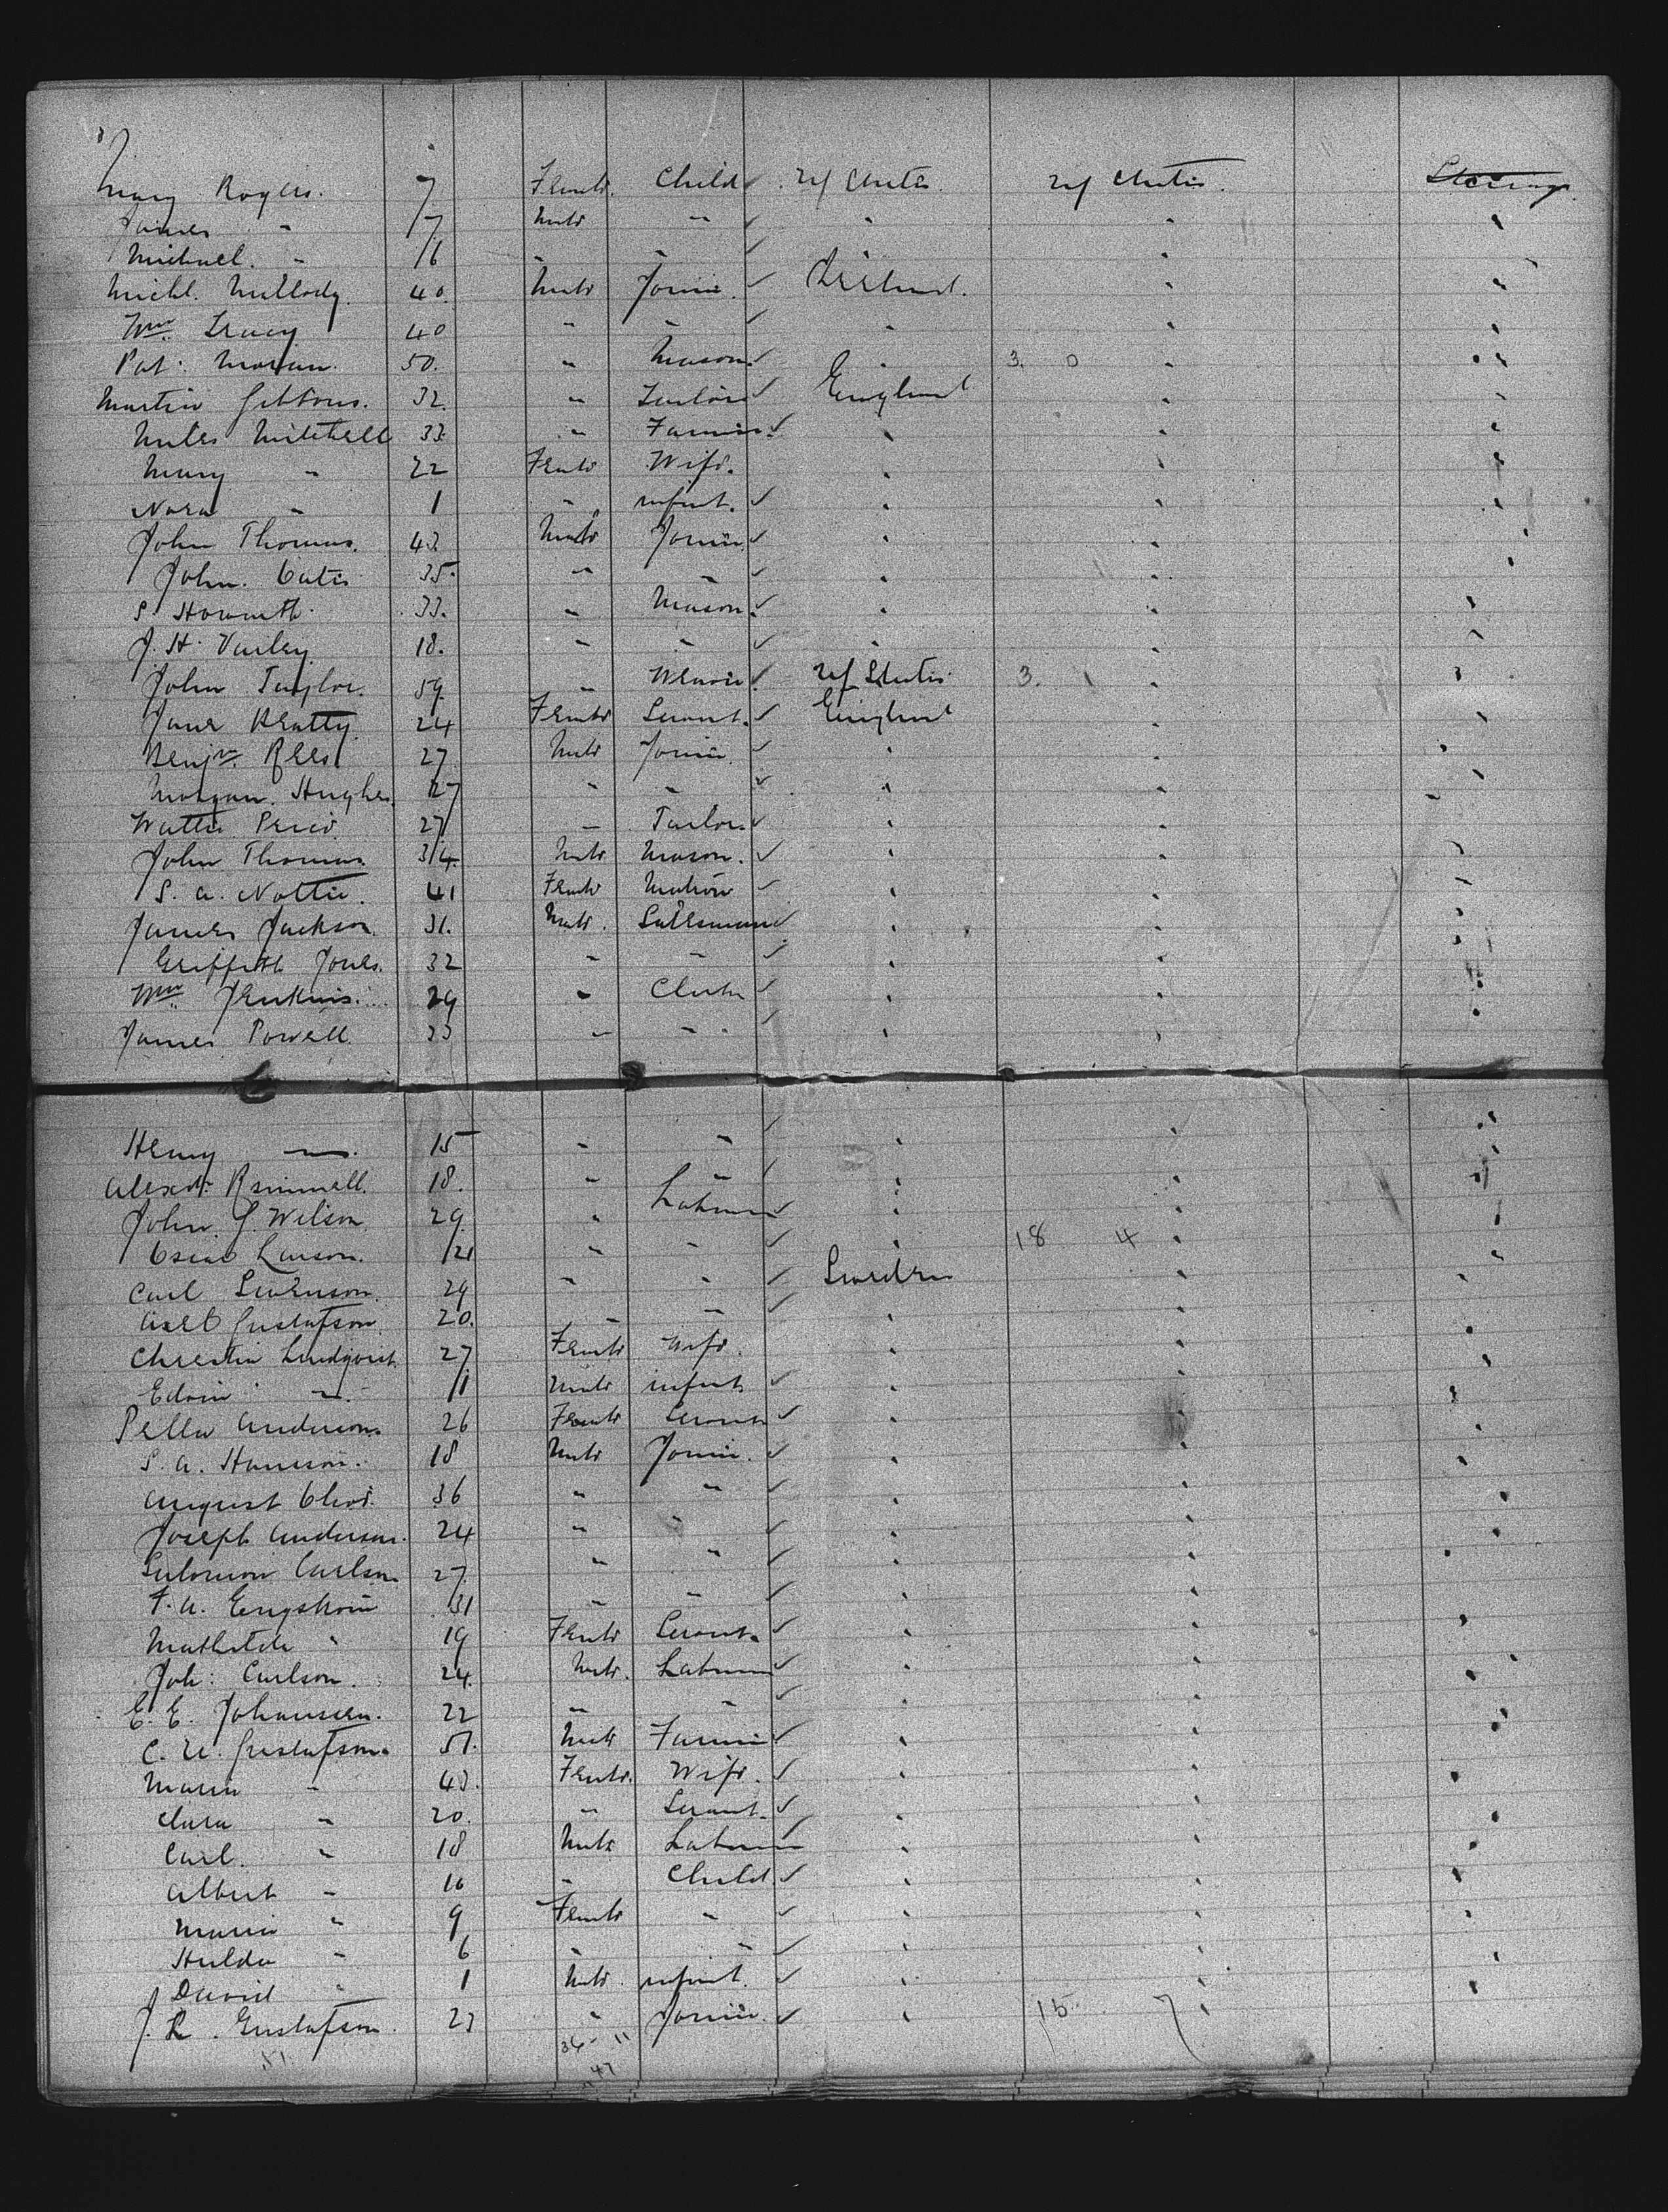 Mary Rogers. 7 Female. Child U/ States. U/ States. Steerage
James " 7 Male "
Michael. " 6 " "
Michl. Mellody. 40. Male Joiner. Ireland.
Wm. Tracy 40 " "
Pat. Moran. 50. " Mason 3. 0
Martin Gibbons. 32. " Tailor England
Miles Mitchell 33. " Farmer.
Mary " 22 Female Wife.
Nora " 1 " infant.
John Thomas. 43 Male Joiner
John. 35. " "
S. Howarth. 33. " Mason
J. H. Varley 18. " "
John Taylor. 59. " Weaver U/ States 3. 1
Jane Beatty. 24 Female Servant. England
Benjn. Rees 27 Male Joiner.
Morgan. Hughes. 27 " "
Walter Price 27 " Tailor
John Thomas. 34. Male Mason.
S. A. 41 Female Matron
James Jackson. 31. Male. Salesman
Griffith Jones. 32 " "
Wm. Jenkins. 29 " Clerk
James Powell. 33 " "
Henry " 15 " "
Alexdr. Rimmell. 18. " "
John J. Wilson. 29. " Labourer
Oscar Larson. 21 " " 18 4
Carl Swenson. 29 " " Sweden
Axel Gustafson 20. " "
Christin Lindqvist 27 Female Wife.
Edwin " 1 Male infant
Pella Anderson. 26 Female Servant
S. A. Hanson. 18 Male Joiner.
August 36 " "
Joseph Anderson. 24 " "
Salomon Carlson 27. " "
F. A. Engstrom 31 " "
Mathilda " 19 Female Servant.
Joh: Carlson. 24. Male. Labourer
E. E. Johansen. 22 " "
C. U. Gustafson. 51. Male Farmer
Maria " 43. Female. Wife.
Clara " 20. " Servant.
Carl. " 18 Male Labourer
Albert " 10 " Child
Maria " 9 Female "
Hulda " 6 " "
David " 1 Male. infant.
J. R. Gustafson. 23 " Joiner. 15. 7
51. 36 - 11
47